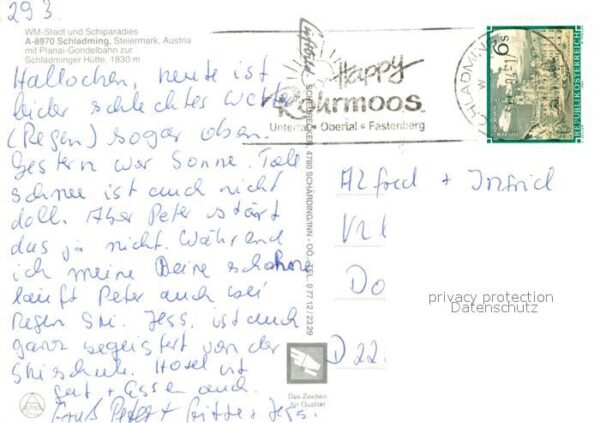 29.3.
WM-Stadt und Schiparadies
A-8970 Schladming, Steiermark, Austria
mit Planai-Gondelbahn zur
Schladminger Hütte, 1830 m
Hallochen, heute ist
leider schlechtes Wetter
(Regen) sogar oben.
Gestern war Sonne. Tole
schnee ist auch nicht
doll. Aber Peter stört
das ja nicht. Während
ich meine Beine schone
läuft Peter auch bei
Regen Ski. Jess. ist auch
ganz begeistert von der
Skischule. Hotel ist
gut + Essen auch.
Gruß Peter + Gitte + Jess.
Happy
Rohrmoos
Untertal • Obertal • Fastenberg
SCHLADMING
6 S
REPUBLIK ÖSTERREICH
4780 SCHÄRDING/INN - OÖ. TEL. 0 77 12 / 23 29
Alfred + Ingrid
Do
D 22
privacy protection
Datenschutz
Das Zeichen
für Qualität